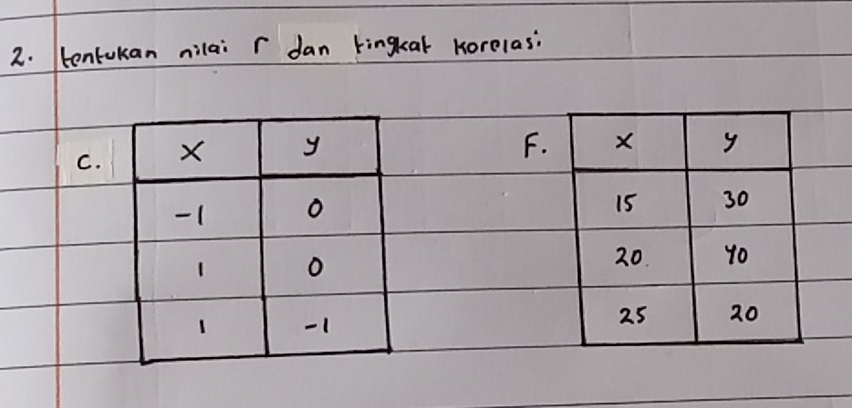 2. tentukan nilai r dan tingkat korelasi
C.
x y
-1 0
1 0
1 -1
F.
x y
15 30
20 40
25 20